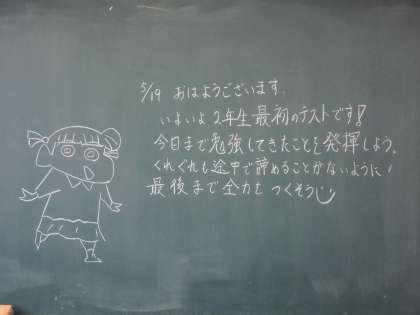 5/19 おはようございます.
いよいよ2年生最初のテストです!
今日まで勉強してきたことを発揮しよう。
くれぐれも途中で諦めることがないように!
最後まで全力をつくそう